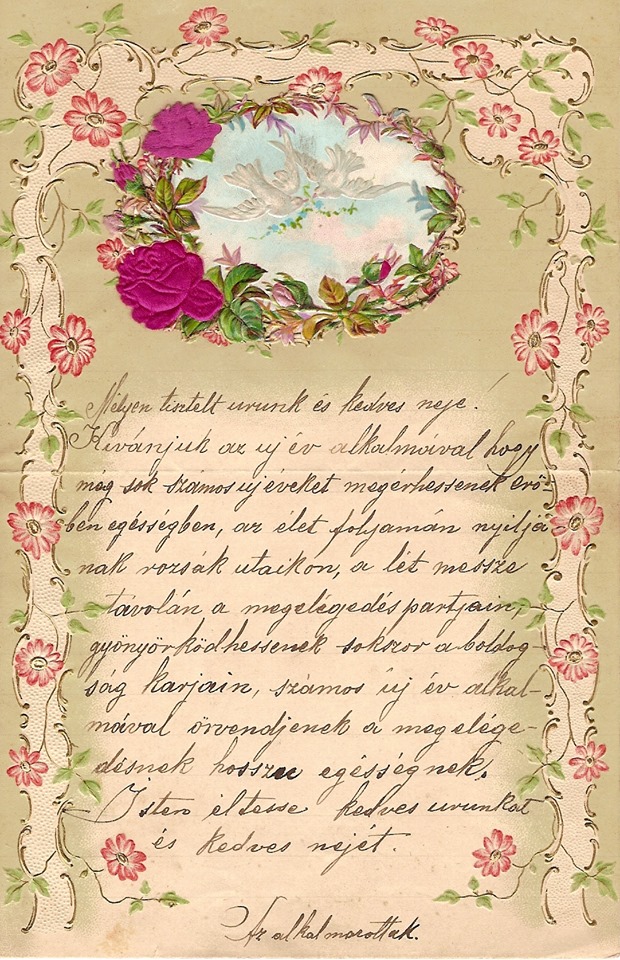 Mélyen tisztelt urunk és kedves neje!
Kivánjuk az uj év alkalmával hogy
még sok számos uj éveket megérhessenek erő-
ben egésségben, az élet folyamán nyilja
nak rozsák utaikon, a lét messze
távolán a megelégedés partjain,
gyönyörködhessenek sokszor a boldog-
ság karjain, számos új év alkal-
mával örvendjenek a megelége-
désnek hosszu egésségnek.
Isten éltesse kedves urunkat
és kedves nejét.
Az alkalmazottak.